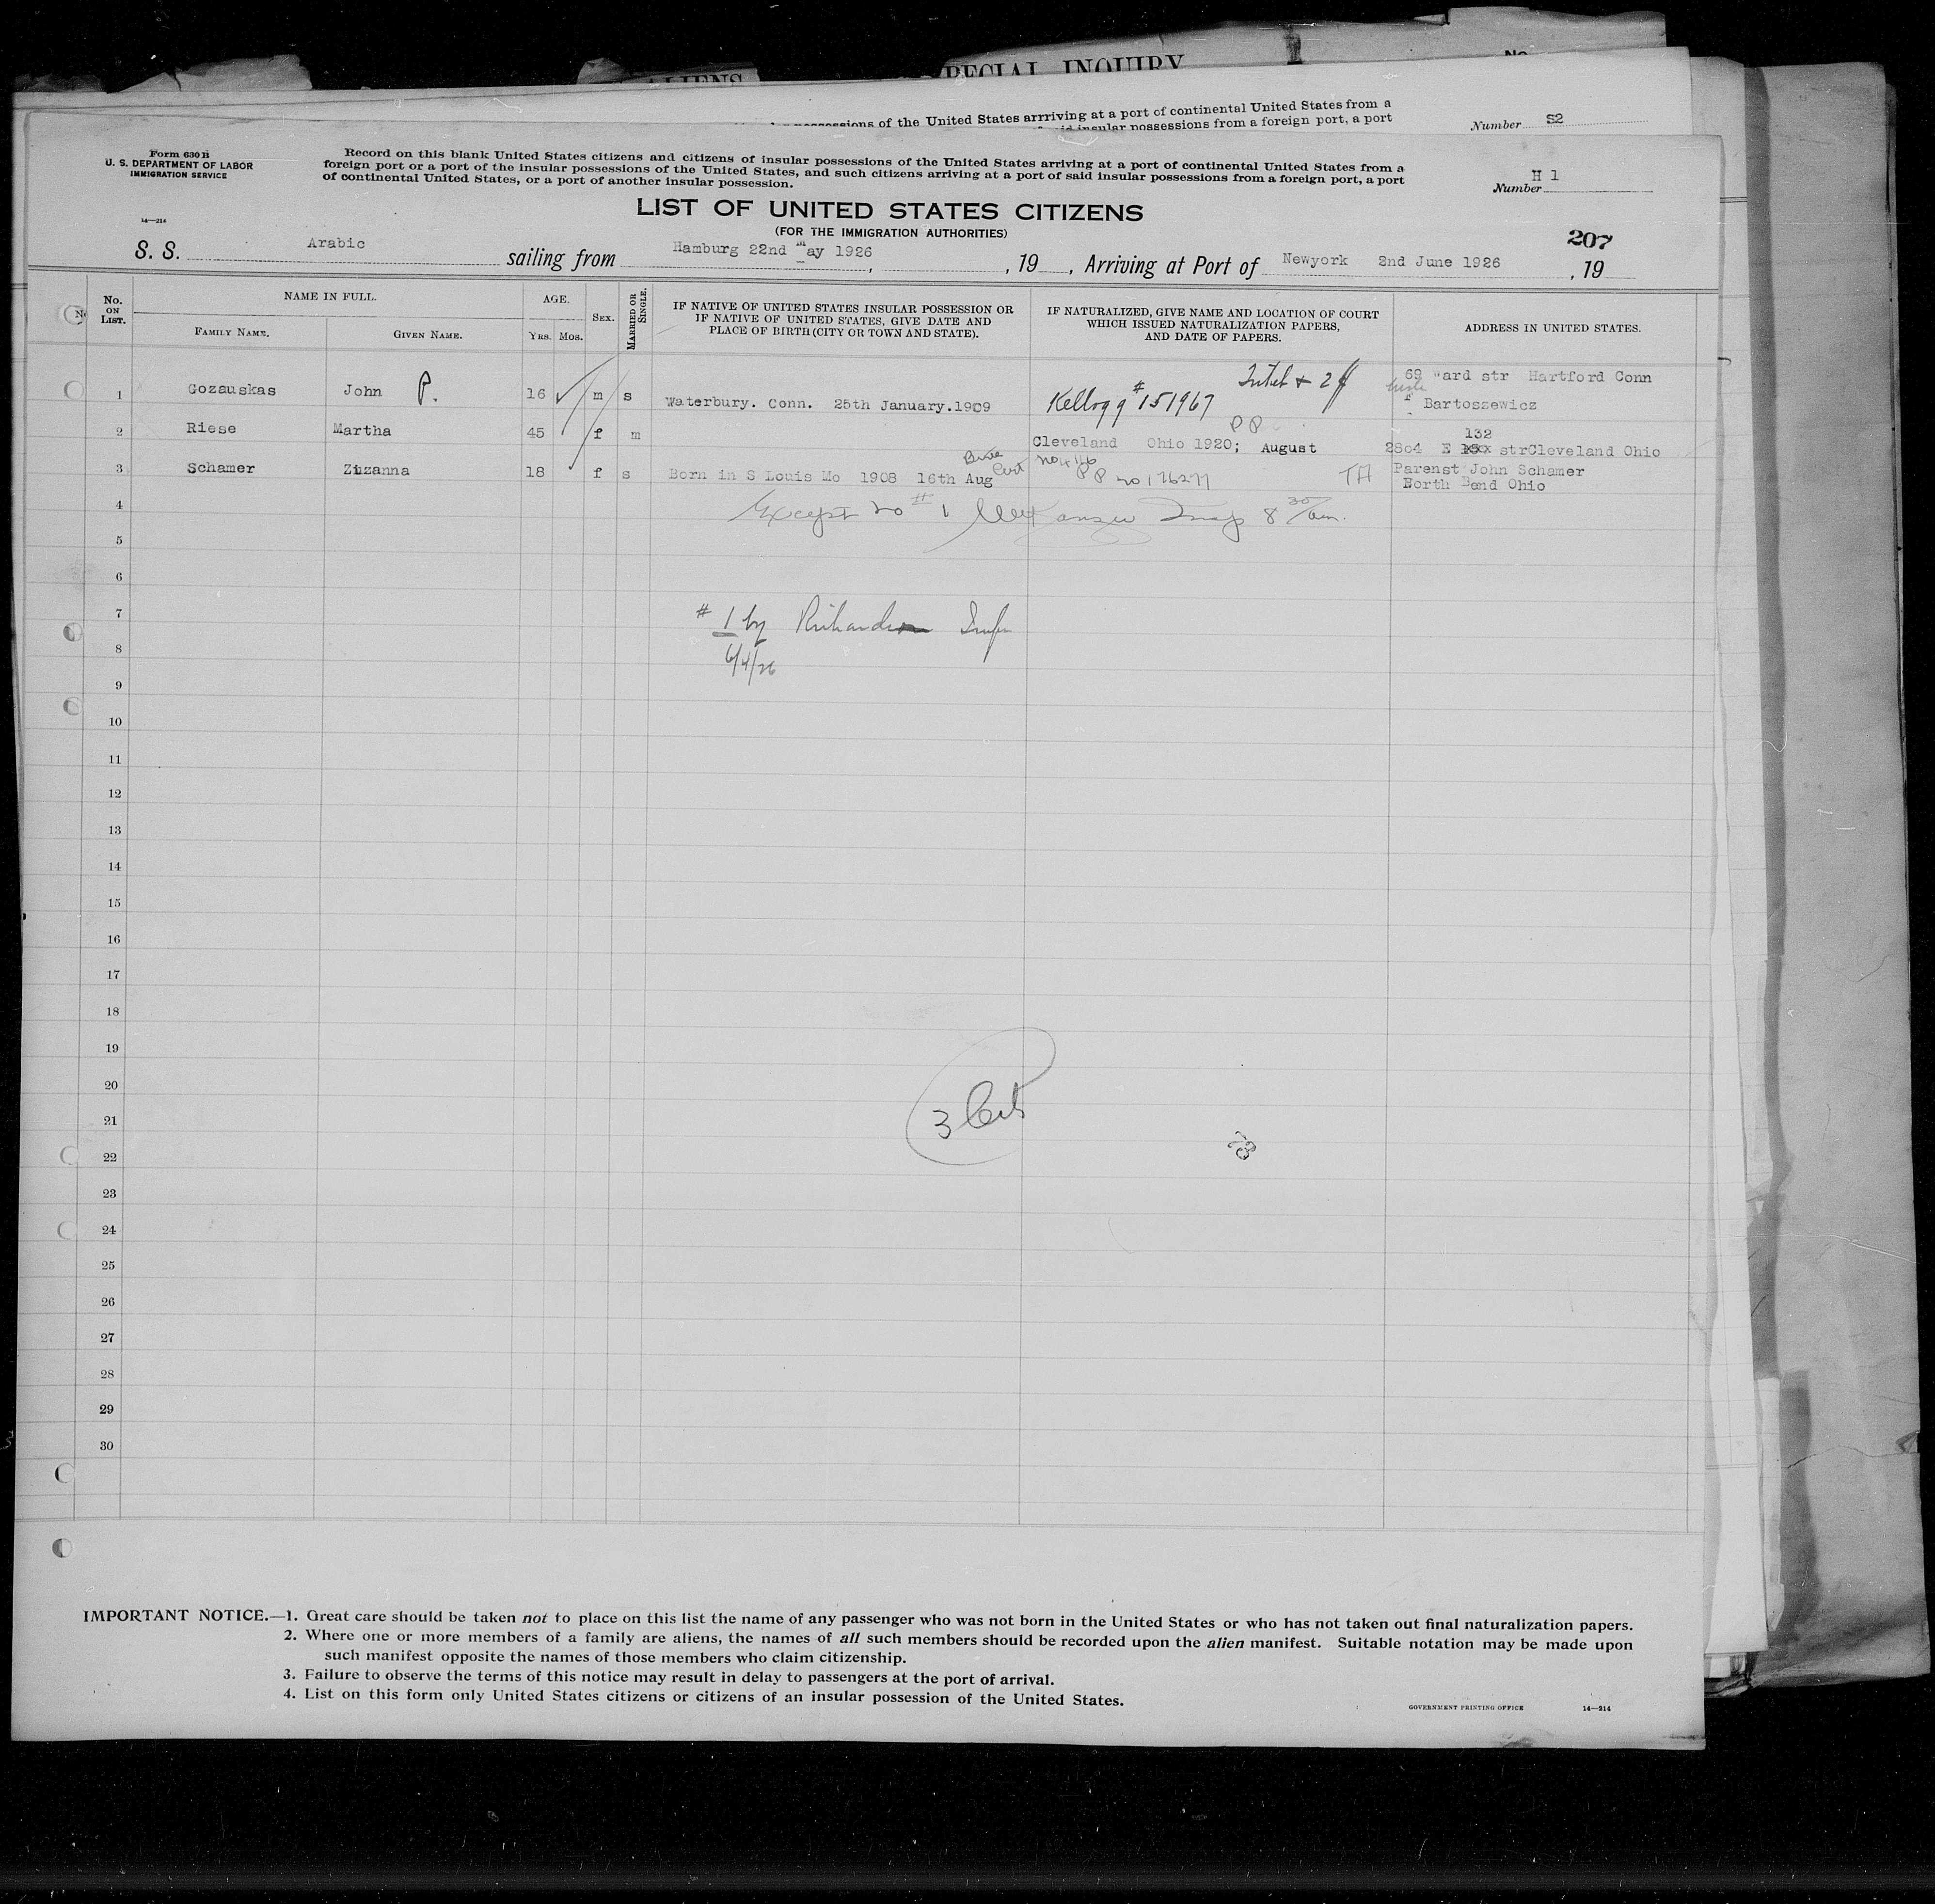 ALIENS
SPECIAL INQUIRY
No
possessions of the United States arrriving at a port of continental United States from a
said insular possessions from a foreign port, a port
Number S2
Form 630 B
U. S. DEPARTMENT OF LABOR
IMMIGRATION SERVICE
14—214
Record on this blank United States citizens and citizens of insular possessions of the United States arriving at a port of continental United States from a
foreign port or a port of the insular possessions of the United States, and such citizens arriving at a port of said insular possessions from a foreign port, a port
of continental United States, or a port of another insular possession.
Number H 1
LIST OF UNITED STATES CITIZENS
(FOR THE IMMIGRATION AUTHORITIES)
207
S. S. Arabic sailing from Hamburg 22nd May 1926, , 19 , Arriving at Port of Newyork 2nd June 1926 , 19
No. ON LIST.
NAME IN FULL.
FAMILY NAME.
GIVEN NAME.
AGE.
YRS. MOS.
SEX.
MARRIED OR SINGLE.
IF NATIVE OF UNITED STATES INSULAR POSSESSION OR
IF NATIVE OF UNITED STATES, GIVE DATE AND
PLACE OF BIRTH (CITY OR TOWN AND STATE).
IF NATURALIZED, GIVE NAME AND LOCATION OF COURT
WHICH ISSUED NATURALIZATION PAPERS,
AND DATE OF PAPERS.
ADDRESS IN UNITED STATES.
1 Gozauskas John P. 16 m s Waterbury. Conn. 25th January.1909 Kellogg #151967 69 Ward str Hartford Conn
Bartoszewicz
2 Riese Martha 45 f m PP Cleveland Ohio 1920; August 132
2804 E strCleveland Ohio
3 Schamer Zuzanna 18 f s Born in S Louis Mo 1908 16th Aug Cert PP no 176277 TA Parenst John Schamer
North Bend Ohio
4 Except no #1 8 30/am.
5
6
7 #1 by Richardson Insp
8 6/4/26
9
10
11
12
13
14
15
16
17
18
19
20
21 3 Cits
22
23
24
25
26
27
28
29
30
IMPORTANT NOTICE.—1. Great care should be taken not to place on this list the name of any passenger who was not born in the United States or who has not taken out final naturalization papers.
2. Where one or more members of a family are aliens, the names of all such members should be recorded upon the alien manifest. Suitable notation may be made upon
such manifest opposite the names of those members who claim citizenship.
3. Failure to observe the terms of this notice may result in delay to passengers at the port of arrival.
4. List on this form only United States citizens or citizens of an insular possession of the United States.
GOVERNMENT PRINTING OFFICE 14—214